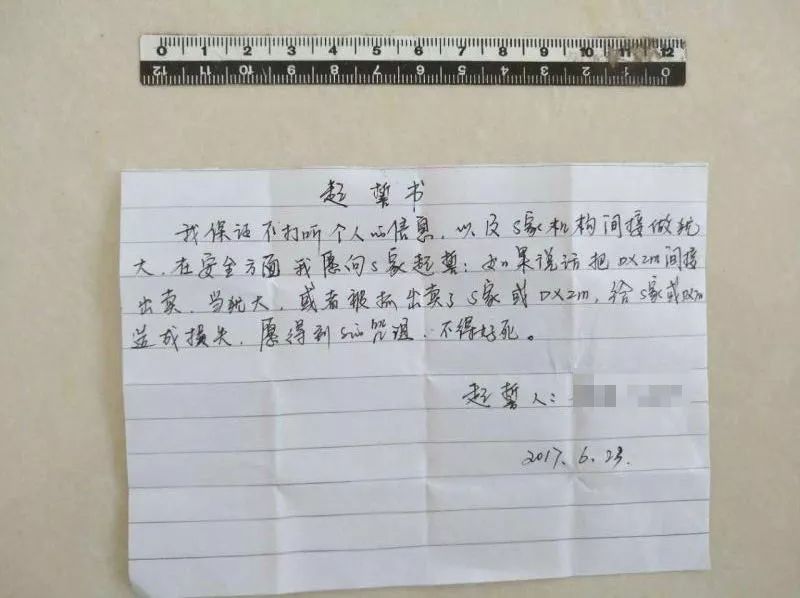 0 1 2 3 4 5 6 7 8 9 10 11 12
12 11 10 9 8 7 6 5 4 3 2 1 0
起誓书
我保证不打听个人的信息，以及S家机构间接做犹
大，在安全方面我愿向S家起誓：如果说话把DXZM间接
出卖，当犹大，或者被抓出卖了S家或DXZM，给S家或DXZM
造成损失，愿得到S的咒诅，不得好死。
起誓人：
2017.6.23.